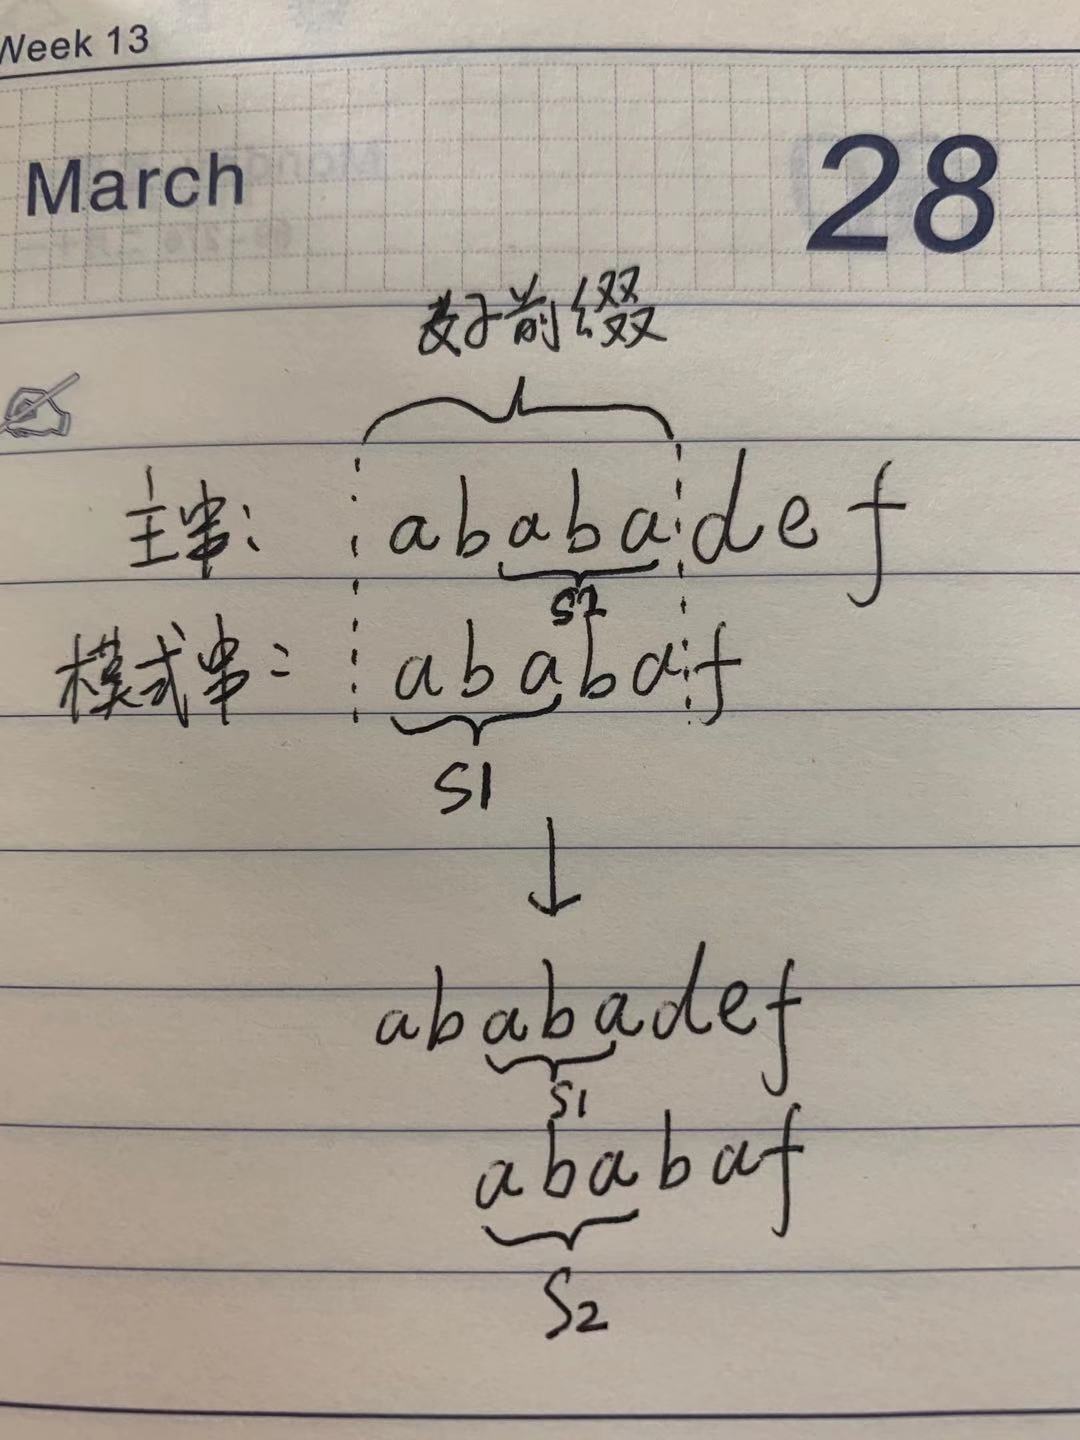 Week 13
March 28
好前缀
主串: ababadef
S2
模式串: ababaf
S1
ababadef
S1
ababaf
S2